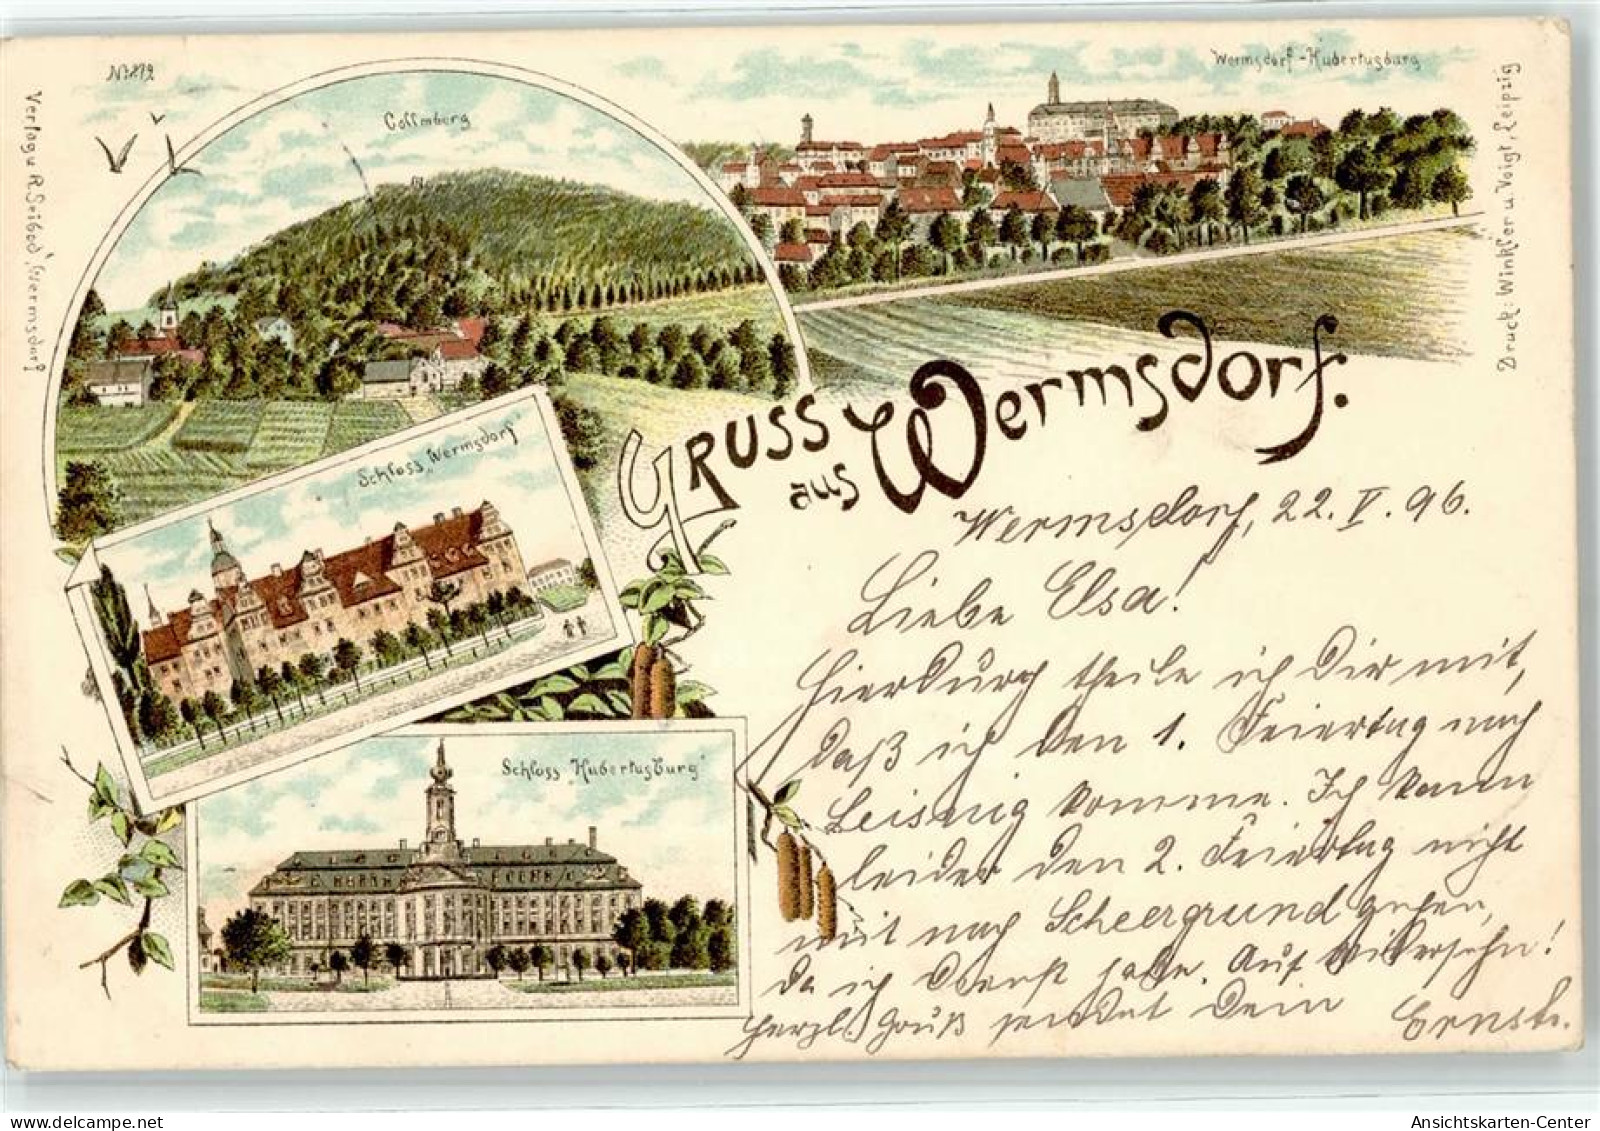 No 272
Collmberg
Wermsdorf-Hubertusburg
Verlag v. R. Seibod, Wermsdorf
Druck: Winkler u. Voigt, Leipzig
Schloss "Wermsdorf"
Gruss
aus Wermsdorf.
Schloss "Hubertusburg"
Wermsdorf, 22. V. 96.
Liebe Elsa!
Hierdurch theile ich Dir mit,
daß ich den 1. Feiertag nach
Leisnig komme. Ich kann
leider den 2. Feiertag nicht
mit nach Scheergrund gehen,
da ich Dienst habe. Auf Wiedersehn!
Herzl. Gruß sendet Dein Ernst.
Ansichtskarten-Center